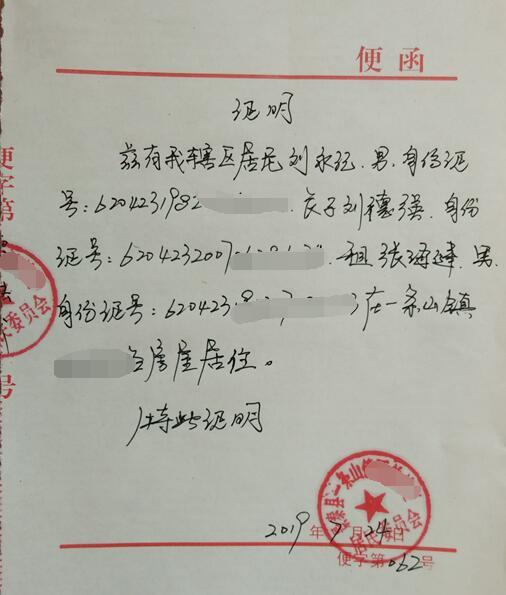 便函
证明
兹有我辖区居民刘永红,男,身份证
号:6204231982 长子刘德强,身份
证号:6204232007 租张 男,
身份证号:620423 在一条山镇
房屋居住。
特此证明
2019年7月24日
居民委员会
便字第062号
便字第
委员会
号